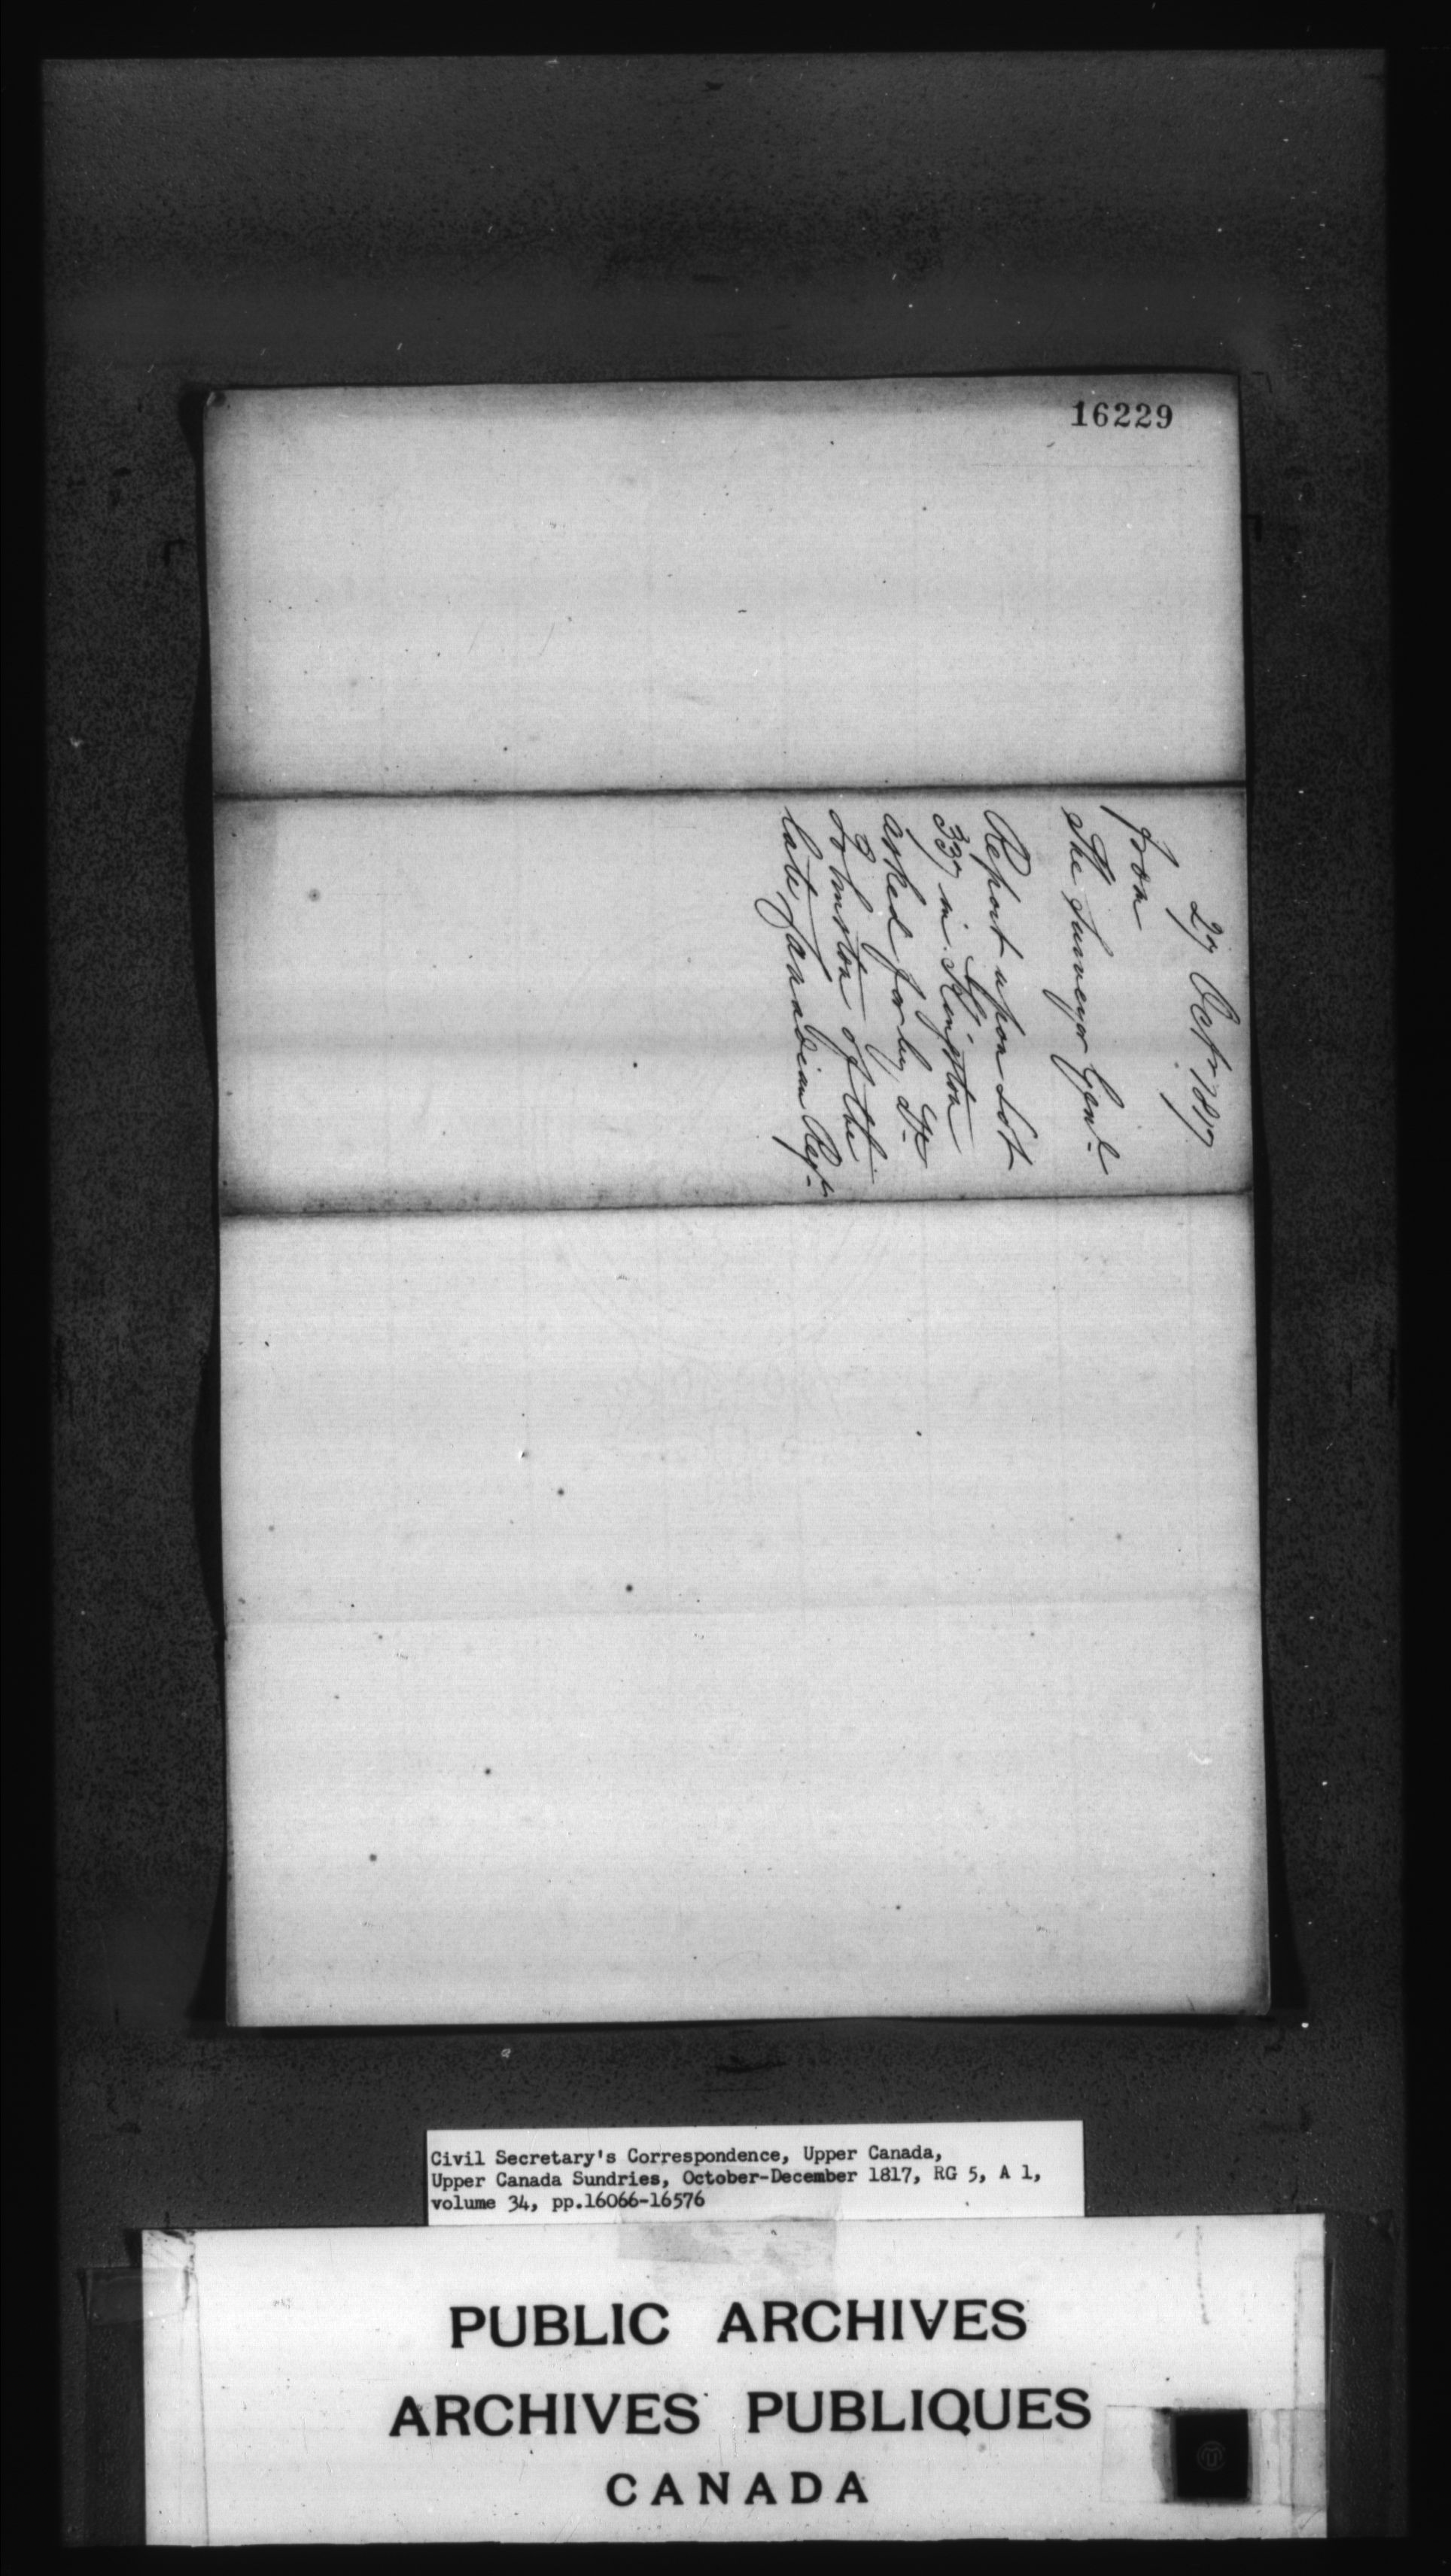 16229
27 Octr. 1817
From
The Surveyor Genl.
Report upon Lot
337 in Kingston
asked for by Lt.
Johnston of the
late Canadian Regt.
Civil Secretary's Correspondence, Upper Canada,
Upper Canada Sundries, October-December 1817, RG 5, A 1,
volume 34, pp.16066-16576
PUBLIC ARCHIVES
ARCHIVES PUBLIQUES
CANADA